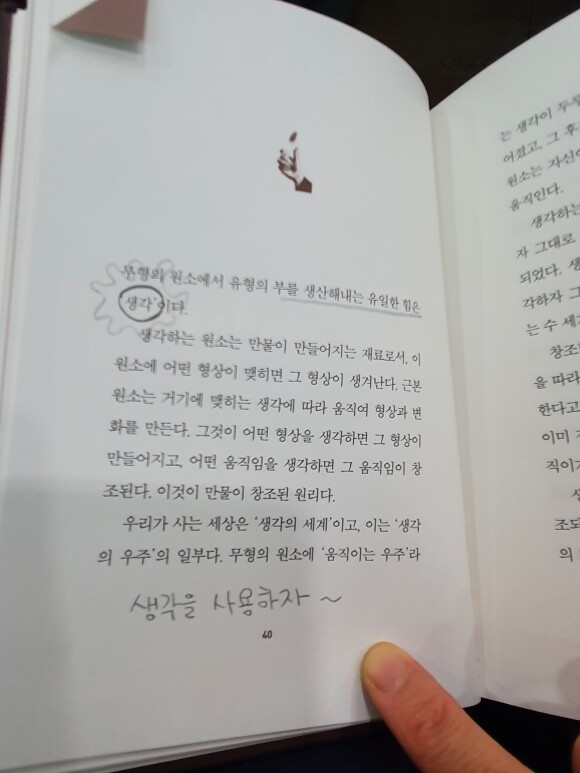 무형의 원소에서 유형의 부를 생산해내는 유일한 힘은
'생각'이다.
생각하는 원소는 만물이 만들어지는 재료로서, 이
원소에 어떤 형상이 맺히면 그 형상이 생겨난다. 근본
원소는 거기에 맺히는 생각에 따라 움직여 형상과 변
화를 만든다. 그것이 어떤 형상을 생각하면 그 형상이
만들어지고, 어떤 움직임을 생각하면 그 움직임이 창
조된다. 이것이 만물이 창조된 원리다.
우리가 사는 세상은 '생각의 세계'이고, 이는 '생각
의 우주'의 일부다. 무형의 원소에 '움직이는 우주'라
생각을 사용하자 ~
40
는 생각이
어졌고, 그 후
원소는
움직인다.
생각하는
자 그대로
되었다.
각하자 그
는 수
을 따라
한다고
이미
의